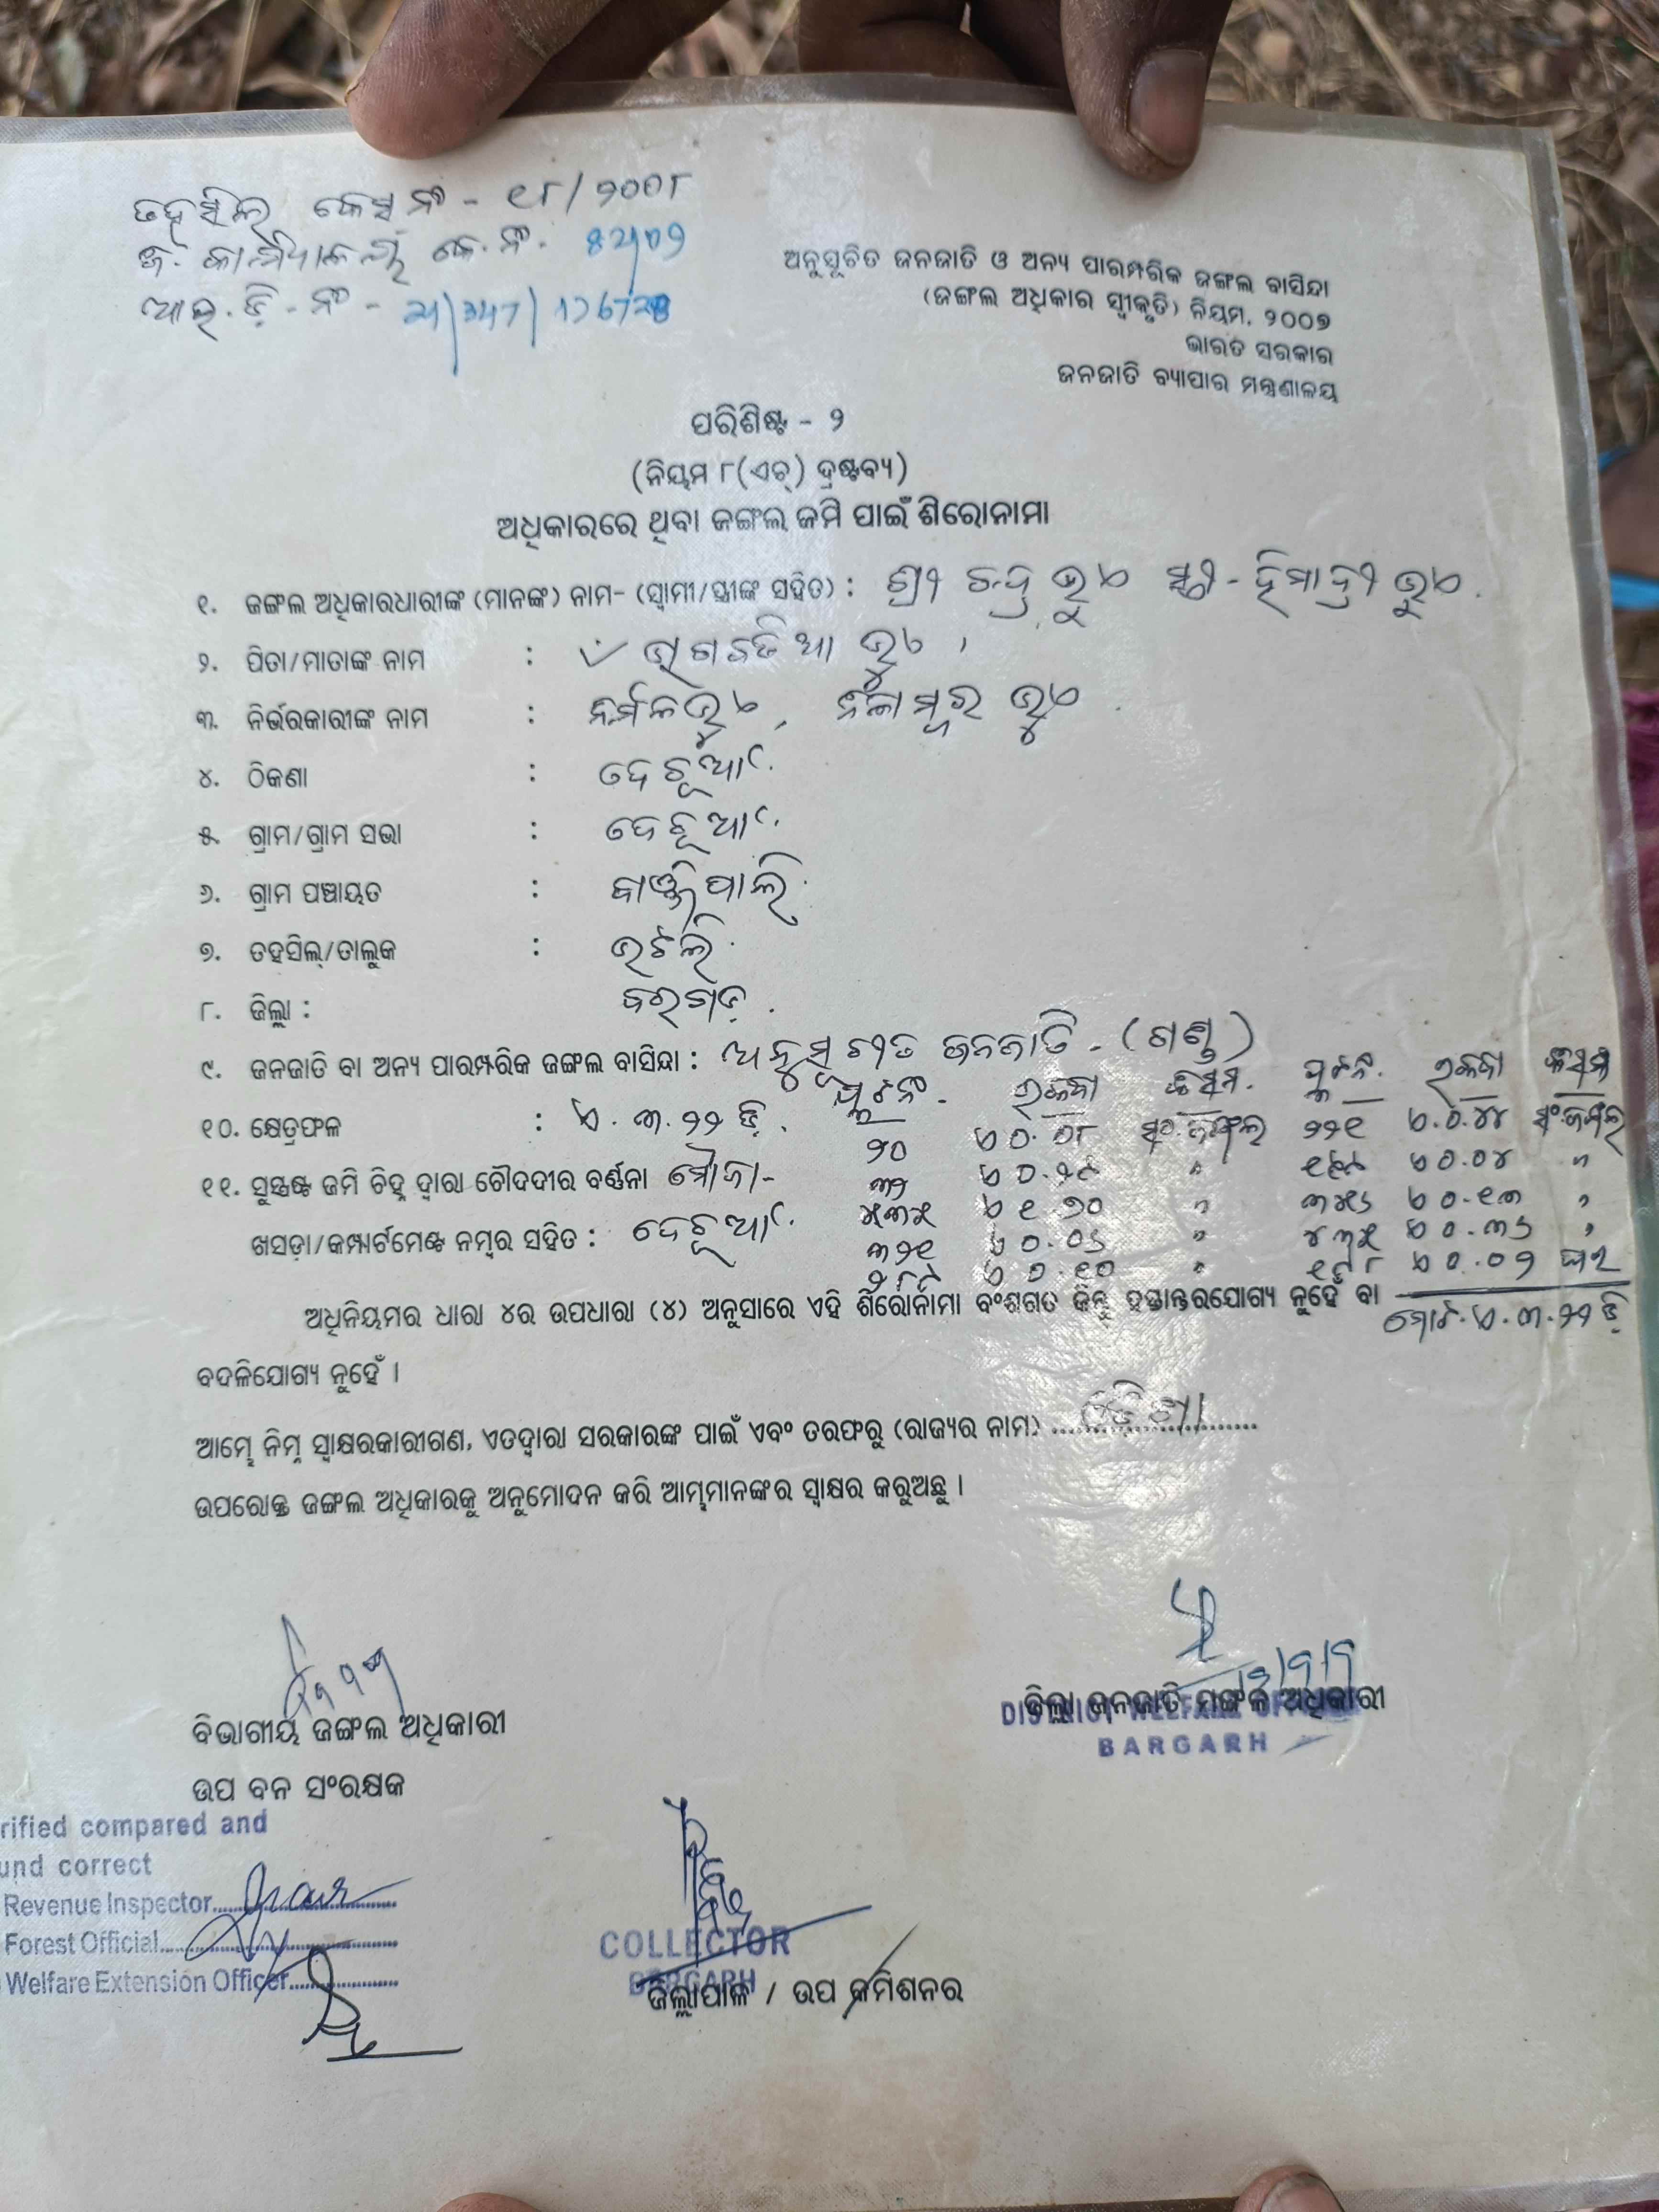 ତହସିଲ କେସ ନଂ - ୧୮/୨୦୦୮
କେ. ନଂ. 52/09
ଆଇ. ଡି - ନଂ - 21/347/
ଅନୁସୂଚିତ ଜନଜାତି ଓ ଅନ୍ୟ ପାରମ୍ପରିକ ଜଙ୍ଗଲ ବାସିନ୍ଦା
(ଜଙ୍ଗଲ ଅଧିକାର ସ୍ୱୀକୃତି) ନିୟମ, ୨୦୦୭
ଭାରତ ସରକାର
ଜନଜାତି ବ୍ୟାପାର ମନ୍ତ୍ରଣାଳୟ
ପରିଶିଷ୍ଟ - ୨
(ନିୟମ ୮(ଏଚ୍) ଦ୍ରଷ୍ଟବ୍ୟ)
ଅଧିକାରରେ ଥିବା ଜଙ୍ଗଲ ଜମି ପାଇଁ ଶିରୋନାମା
୧. ଜଙ୍ଗଲ ଅଧିକାରଧାରୀଙ୍କ (ମାନଙ୍କ) ନାମ- (ସ୍ୱାମୀ/ସ୍ତ୍ରୀଙ୍କ ସହିତ) : ଶ୍ରୀ ଚନ୍ଦ୍ର ଭୁଏ ସ୍ତ୍ରୀ - ହିମାଦ୍ରୀ ଭୁଏ.
୨. ପିତା/ମାତାଙ୍କ ନାମ : ଭୁଏ
୩. ନିର୍ଭରକାରୀଙ୍କ ନାମ : ନିର୍ମଳ ଭୁଏ, ନିଳାମ୍ବର ଭୁଏ
୪. ଠିକଣା : ଦେଚୂଆଁ.
୫. ଗ୍ରାମ/ଗ୍ରାମ ସଭା : ଦେଚୂଆଁ.
୬. ଗ୍ରାମ ପଞ୍ଚାୟତ : ବାଞ୍ଜିପାଲି.
୭. ତହସିଲ୍/ତାଲୁକ : ଭଟଲି.
୮. ଜିଲ୍ଲା : ବରଗଡ଼.
୯. ଜନଜାତି ବା ଅନ୍ୟ ପାରମ୍ପରିକ ଜଙ୍ଗଲ ବାସିନ୍ଦା : ଅନୁସୂଚୀତ ଜନଜାତି - (ଗଣ୍ଡ)
ପ୍ଲଟ ନଂ. ରକବା କିସମ. ପ୍ଲଟ ନଂ. ରକବା କିସମ
୧୦. କ୍ଷେତ୍ରଫଳ : ଏ. ୩.୨୨ ଡ଼ି. ୨୦ ଏ ୦.୦୮ ସଂ.ଜଙ୍ଗଲ ୨୨୧ ଏ.୦.୪୪ ସଂ.ଜଙ୍ଗଲ
୧୧. ସୁସ୍ପଷ୍ଟ ଜମି ଚିହ୍ନ ଦ୍ୱାରା ଚୌଦଦୀର ବର୍ଣ୍ଣନା ମୌଜା- ଏ ୦.୦୪ "
ଖସଡ଼ା/କମ୍ପାର୍ଟମେଣ୍ଟ ନମ୍ବର ସହିତ : ଦେଚୂଆଁ. ଏ ୧.୭୦ " ଏ ୦.୧୩ "
୩୨୧ ଏ ୦.୦୬ " ଏ ୦.୩୬ "
ଏ ୦.୧୦ " ଏ ୦.୦୨ ଘର
ଅଧିନିୟମର ଧାରା ୪ର ଉପଧାରା (୪) ଅନୁସାରେ ଏହି ଶିରୋନାମା ବଂଶଗତ କିନ୍ତୁ ହସ୍ତାନ୍ତରଯୋଗ୍ୟ ନୁହେଁ ବା
ମୋଟ. ଏ. ୩.୨୨ ଡ଼ି
ବଦଳିଯୋଗ୍ୟ ନୁହେଁ ।
ଆମ୍ଭେ ନିମ୍ନ ସ୍ୱାକ୍ଷରକାରୀଗଣ, ଏତଦ୍ୱାରା ସରକାରଙ୍କ ପାଇଁ ଏବଂ ତରଫରୁ (ରାଜ୍ୟର ନାମ) ଓଡ଼ିଶା
ଉପରୋକ୍ତ ଜଙ୍ଗଲ ଅଧିକାରକୁ ଅନୁମୋଦନ କରି ଆମ୍ଭମାନଙ୍କର ସ୍ୱାକ୍ଷର କରୁଅଛୁ ।
ବିଭାଗୀୟ ଜଙ୍ଗଲ ଅଧିକାରୀ
ଉପ ବନ ସଂରକ୍ଷକ
ଜିଲ୍ଲା ଜନଜାତି ମଙ୍ଗଳ ଅଧିକାରୀ
DISTRICT WELFARE OFFICER
BARGARH
rified compared and
und correct
Revenue Inspector
Forest Official
Welfare Extension Officer
COLLECTOR
BARGARH
ଜିଲ୍ଲାପାଳ / ଉପ କମିଶନର